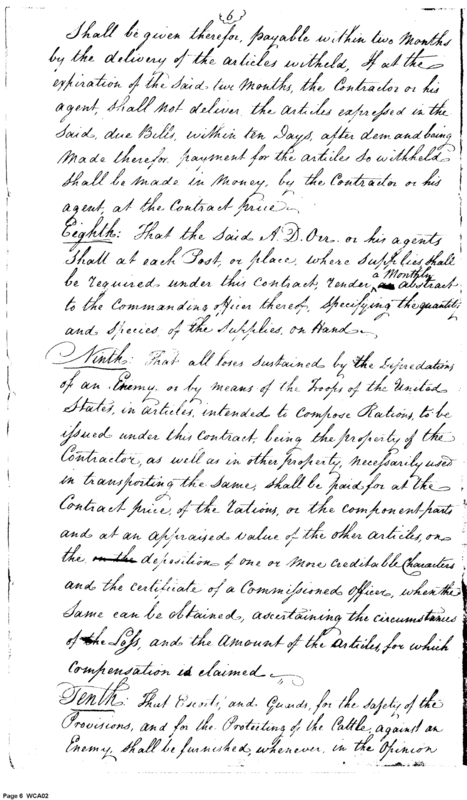 6
Shall be given therefor, payable within two Months
by the delivery of the articles witheld, If at the
expiration of the Said two Months, the Contractor or his
agent, Shall not deliver the articles expressed in the
Said, due Bills, within ten Days, after demand being
Made therefor, payment for the articles so withheld
Shall be made in Money, by the Contractor or his
agent, at the Contract price.
Eighth: That the Said A. D. Orr or his agents
Shall at each Post, or place, where Supplies, Shall
be required under this Contract, render a Monthly abstract
to the Commanding officer thereof, Specifying the quantity
and Species, of the Supplies, on Hand.
Ninth: That all loses Sustained by the Depredations
of an Enemy, or by means of the Troops of the United
States, in articles, intended to compose Rations, to be
issued under this Contract, being the property of the
Contractor, as well as in other property, necessarily used
in transporting the Same, Shall be paid for at the
Contract price, of the Rations, or the component parts
and at an appraised value of the other articles, on
the on the deposition of one or More creditable Characters
and the certificate of a Commissioned officer, when the
Same can be obtained, ascertaining the circumstances
of the Loss, and the Amount of the Articles, for which
Compensation is claimed.
Tenth: That Escorts, and Guards, for the Safety of the
Provisions, and for the Protecting of the Cattle, against an
Enemy, Shall be furnished, whenever, in the Opinion
Page 6 WCA02